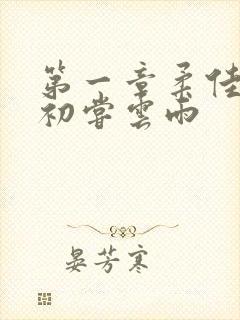 第一章柔佳
初嘗雲雨
晏芳寒